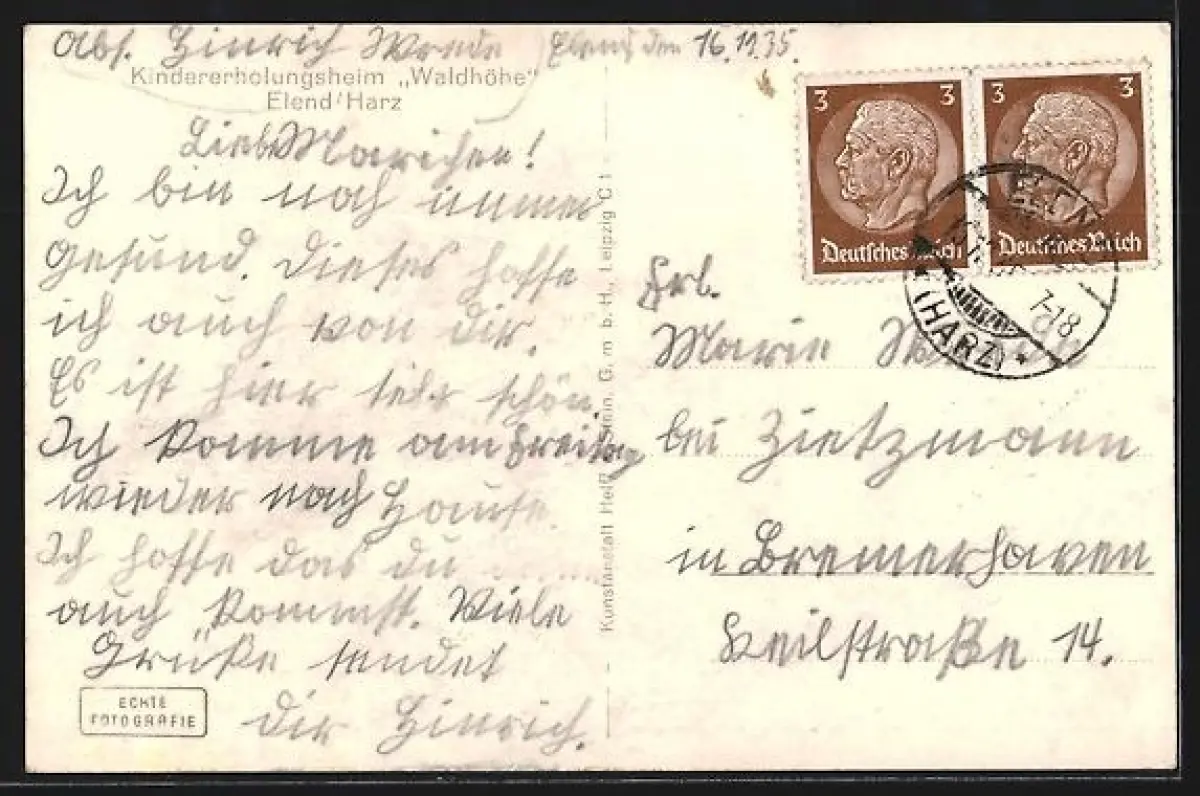 Abs. Hinrich Wrede Elend den 16.11.35.
Kindererholungsheim „Waldhöhe"
Elend/Harz
Liebe Mariechen!
Ich bin noch immer
gesund. Dieses hoffe
ich auch von dir.
Es ist hier sehr schön.
Ich komme am Freitag
wieder nach Hause.
Ich hoffe das du
auch kommst. Viele
Grüße sendet
dir Hinrich.
ECHTE
FOTOGRAFIE
Kunstanstalt G. m. b. H., Leipzig C 1
3 3
Deutsches Reich
3 3
Deutsches Reich
(HARZ)
7-18
Frl.
Marie
bei Zietzmann
in Bremerhaven
Keilstraße 14.